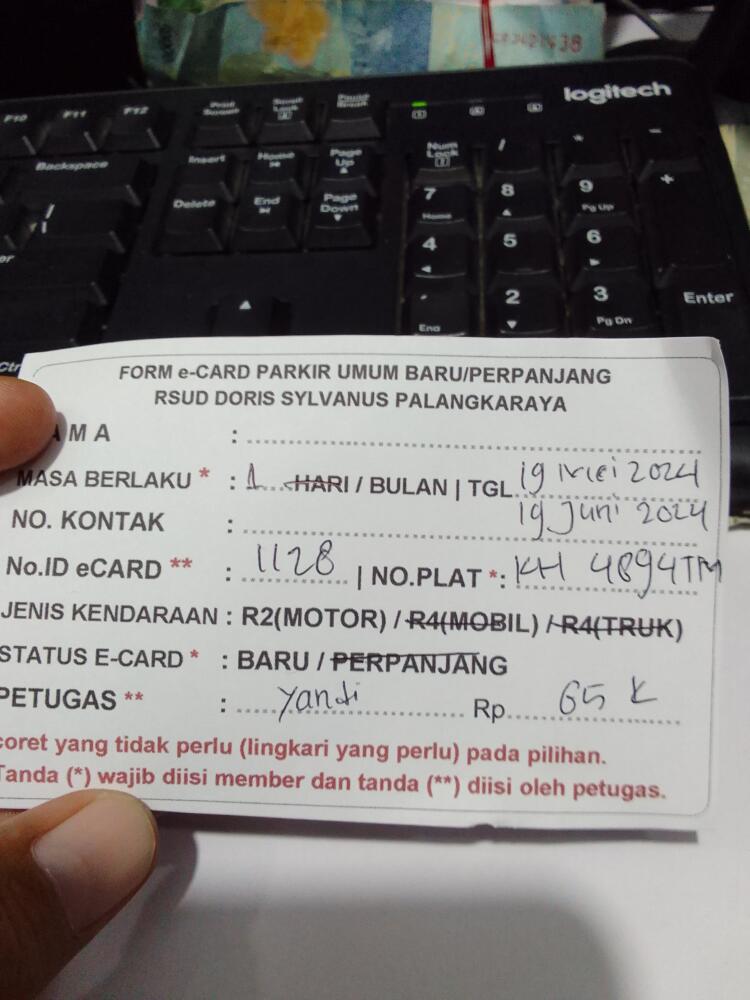 CR3421638
logitech
F10 F11 F12 Print Screen Scroll Lock Pause Break
Backspace Insert Home Page Up Num Lock / * -
7 Home 8 9 Pg Up +
\ Delete End Page Down
4 5 6
Enter
End 2 3 Pg Dn
Ctrl
FORM e-CARD PARKIR UMUM BARU/PERPANJANG
RSUD DORIS SYLVANUS PALANGKARAYA
AMA :
MASA BERLAKU * : 1 HARI / BULAN | TGL. 19 Mei 2024
NO. KONTAK : 19 Juni 2024
No.ID eCARD ** : 1128 | NO.PLAT *: KH 4894TM
JENIS KENDARAAN : R2(MOTOR) / R4(MOBIL) / R4(TRUK)
STATUS E-CARD * : BARU / PERPANJANG
PETUGAS ** : Yandi Rp. 65 K
coret yang tidak perlu (lingkari yang perlu) pada pilihan.
Tanda (*) wajib diisi member dan tanda (**) diisi oleh petugas.